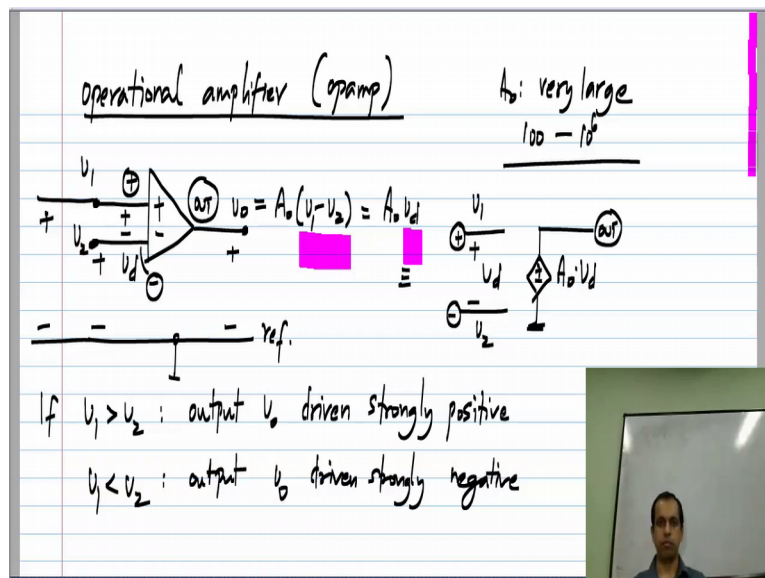 operational amplifier (opamp)
A₀: very large
100 – 10⁶
v₁ ⊕ + + OUT v₀ = A₀(v₁-v₂) = A₀ v_d
+ v₂ + - - v_d ⊖ +
v₁ ⊕ + OUT
v_d ± A₀·v_d
⊖ - v₂
- - - ref.
If v₁ > v₂ : output v₀ driven strongly positive
v₁ < v₂ : output v₀ driven strongly negative